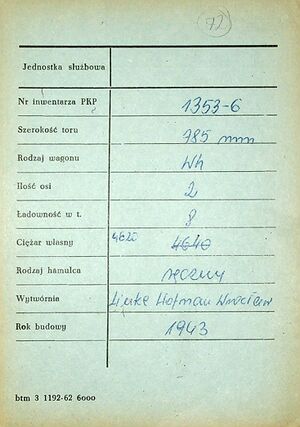 72
Jednostka służbowa
Nr inwentarza PKP 1353-6
Szerokość toru 785 mm
Rodzaj wagonu Wh
Ilość osi 2
Ładowność w t. 8
Ciężar własny 4620 4640
Rodzaj hamulca ręczny
Wytwórnia Linke Hofman Wrocław
Rok budowy 1943
btm 3 1192-62 6000